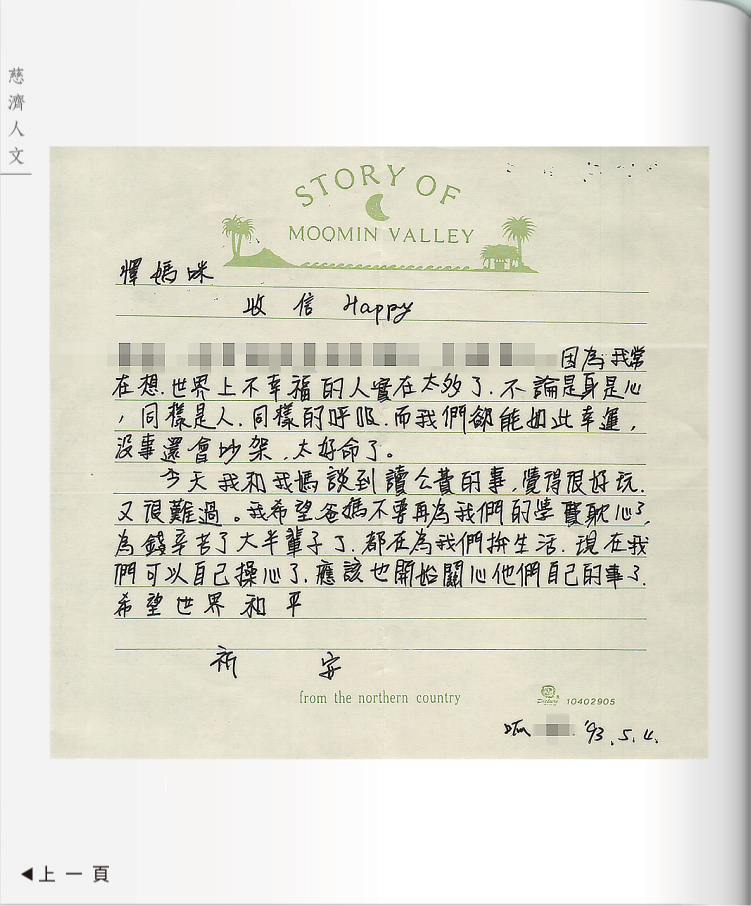 慈濟人文
STORY OF
MOOMIN VALLEY
懌媽咪
收信 Happy
因為我常
在想.世界上不幸福的人實在太多了.不論是身是心
,同樣是人.同樣的呼吸.而我們卻能如此幸運,
沒事還會吵架,太好命了。
今天我和我媽談到讀公費的事,覺得很好玩.
又很難過。我希望爸媽不要再為我們的學費耽心了,
為錢辛苦了大半輩子了.都在為我們拚生活.現在我
們可以自己操心了.應該也開始關心他們自己的事了.
希望世界和平
祈 安
from the northern country
10402905
'93.5.4.
◀上一頁